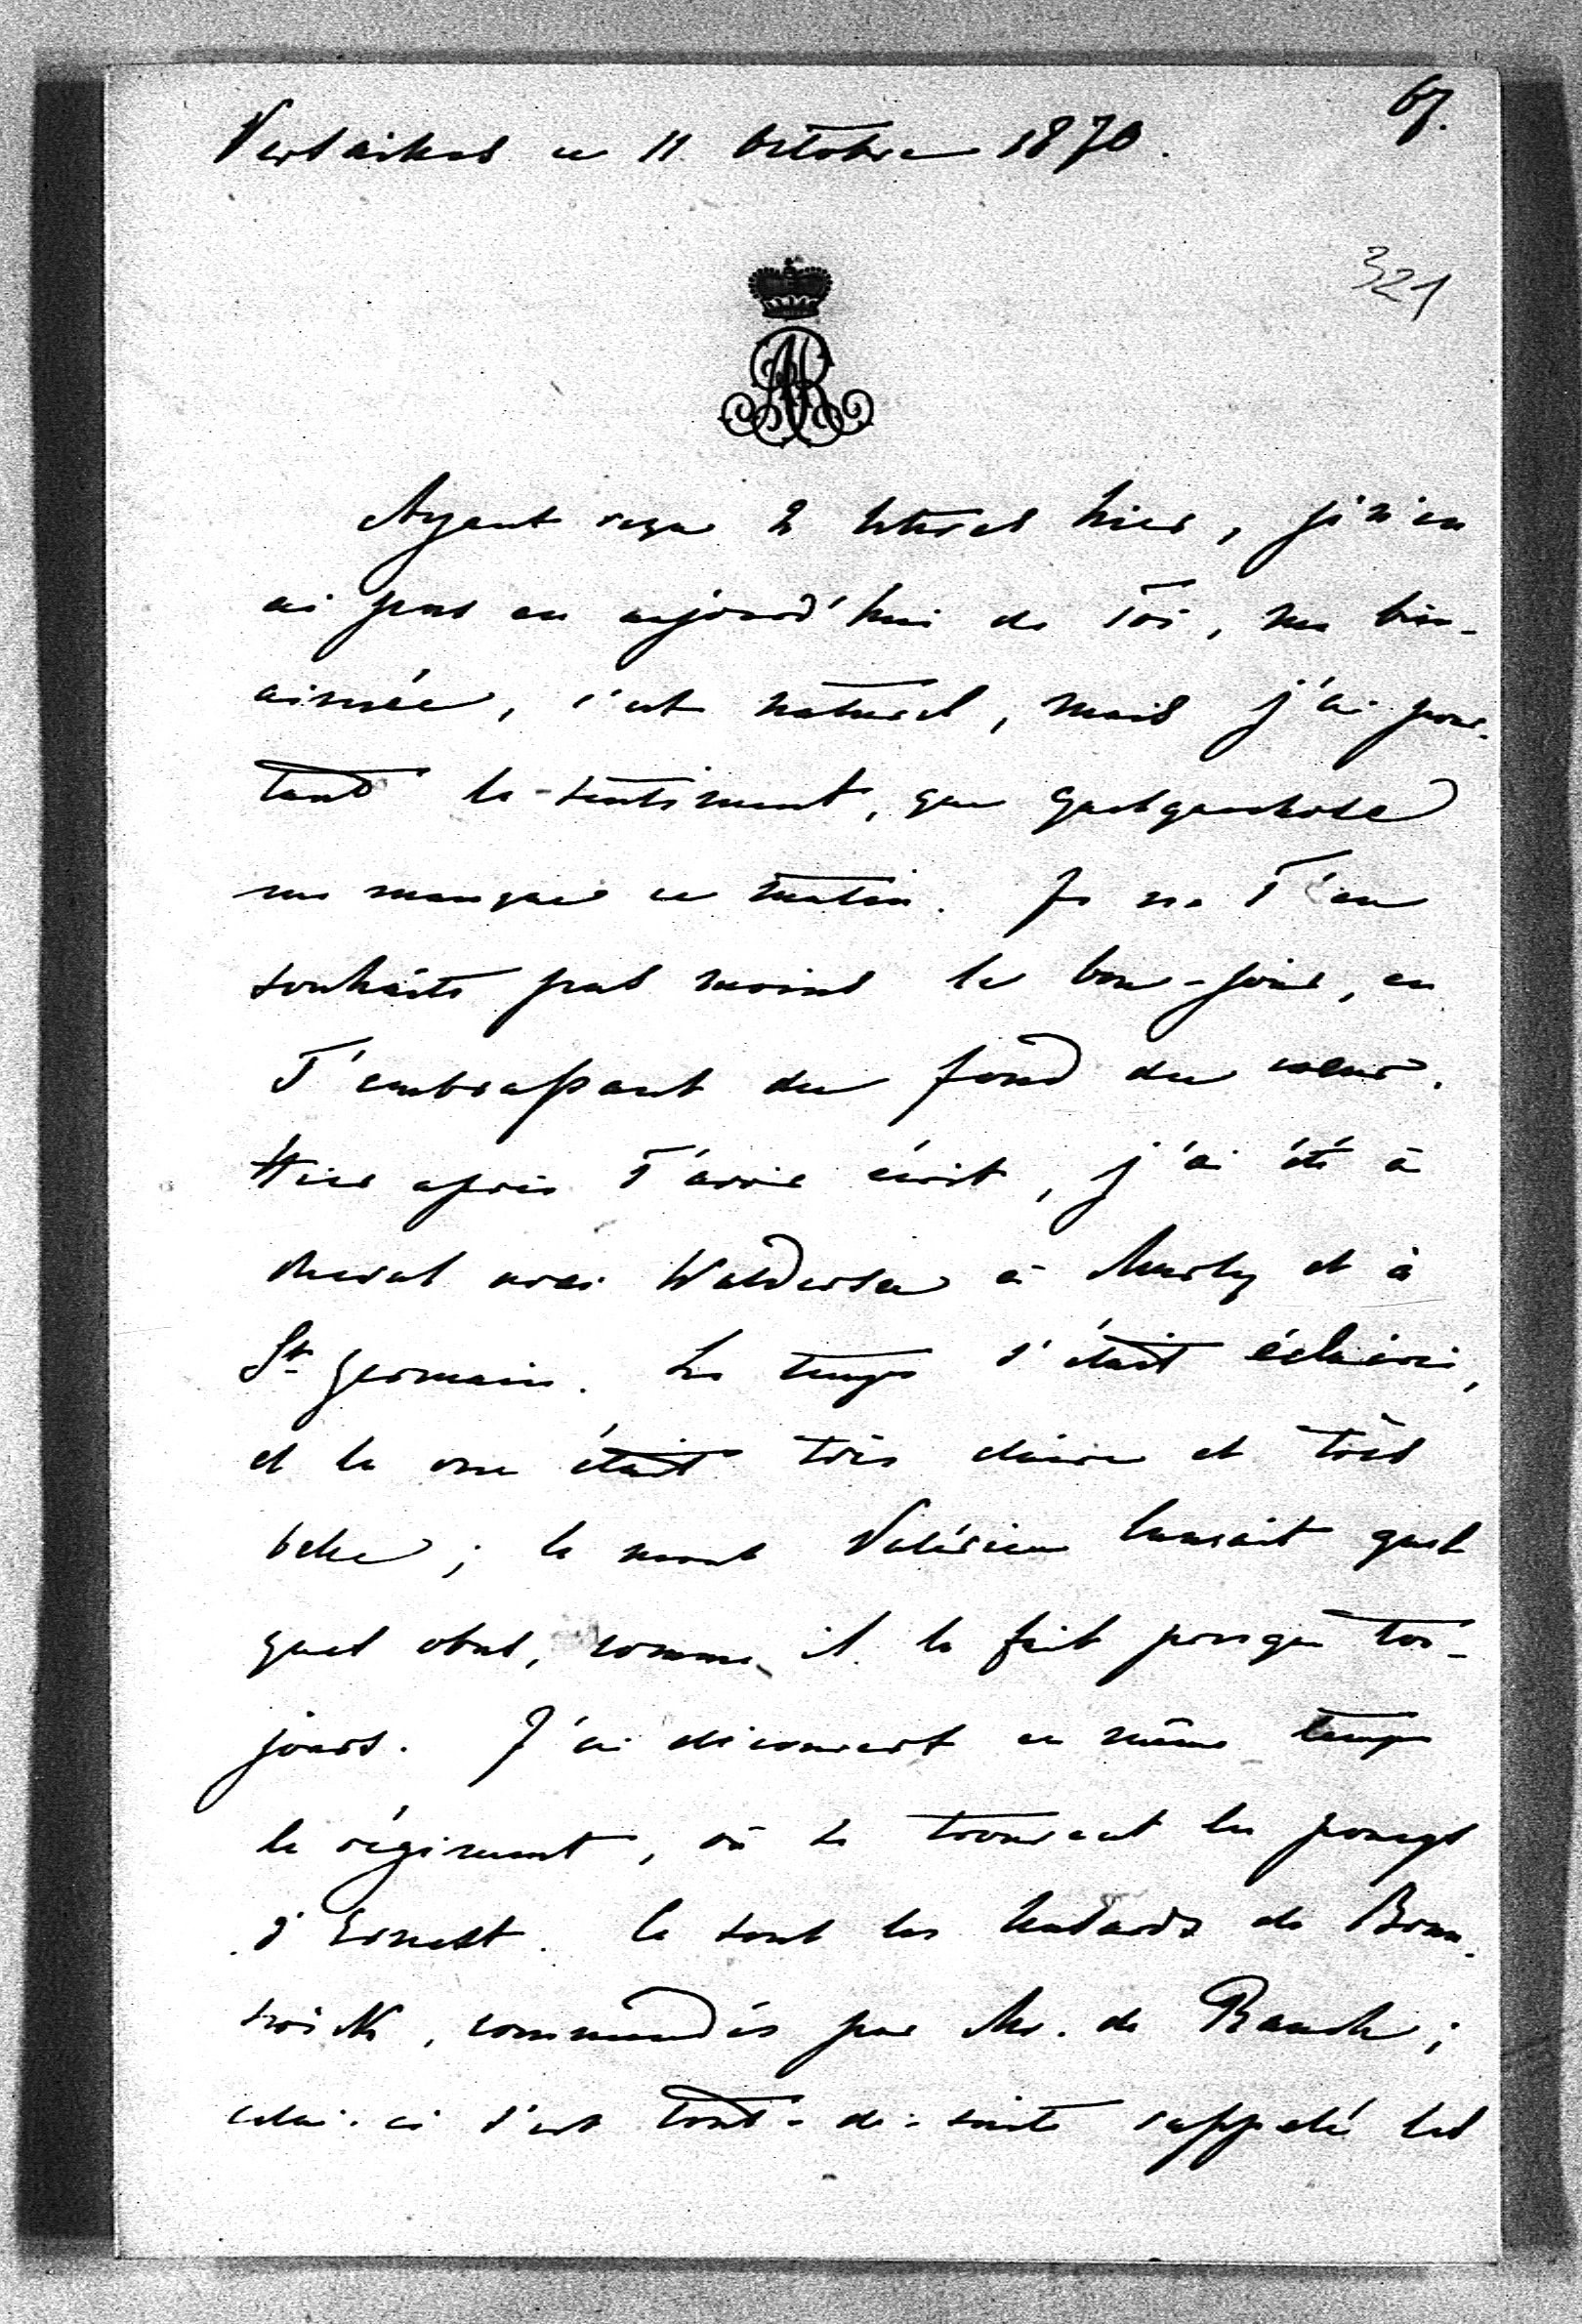 67.
Versailles ce 11 Octobre 1870.
321
AR
Ayant reçu 2 lettres hier, je n'en
ai pas eu aujourd'hui de Toi, ma bien-
aimée, c'est naturel, mais j'ai pour-
tant le sentiment, que quelquechose
me manque ce matin. Je ne T'en
souhaite pas moins le bon-jour, en
T'embrassant du fond du cœur.
Hier après T'avoir écrit, j'ai été à
cheval avec Waldersee à Marly et à
St. Germain. Le temps s'était éclairci,
et la vue était très claire et très
belle; le mont Valérien lançait quel
ques obus, comme il le fait presque tou-
jours. J'ai découvert en même temps
le régiment, où se trouvent les
d'Ernest. Ce sont les husards de Brun-
swick, commandés par Mr. de Rauch;
celui-ci s'est tout-de-suite rappelé les